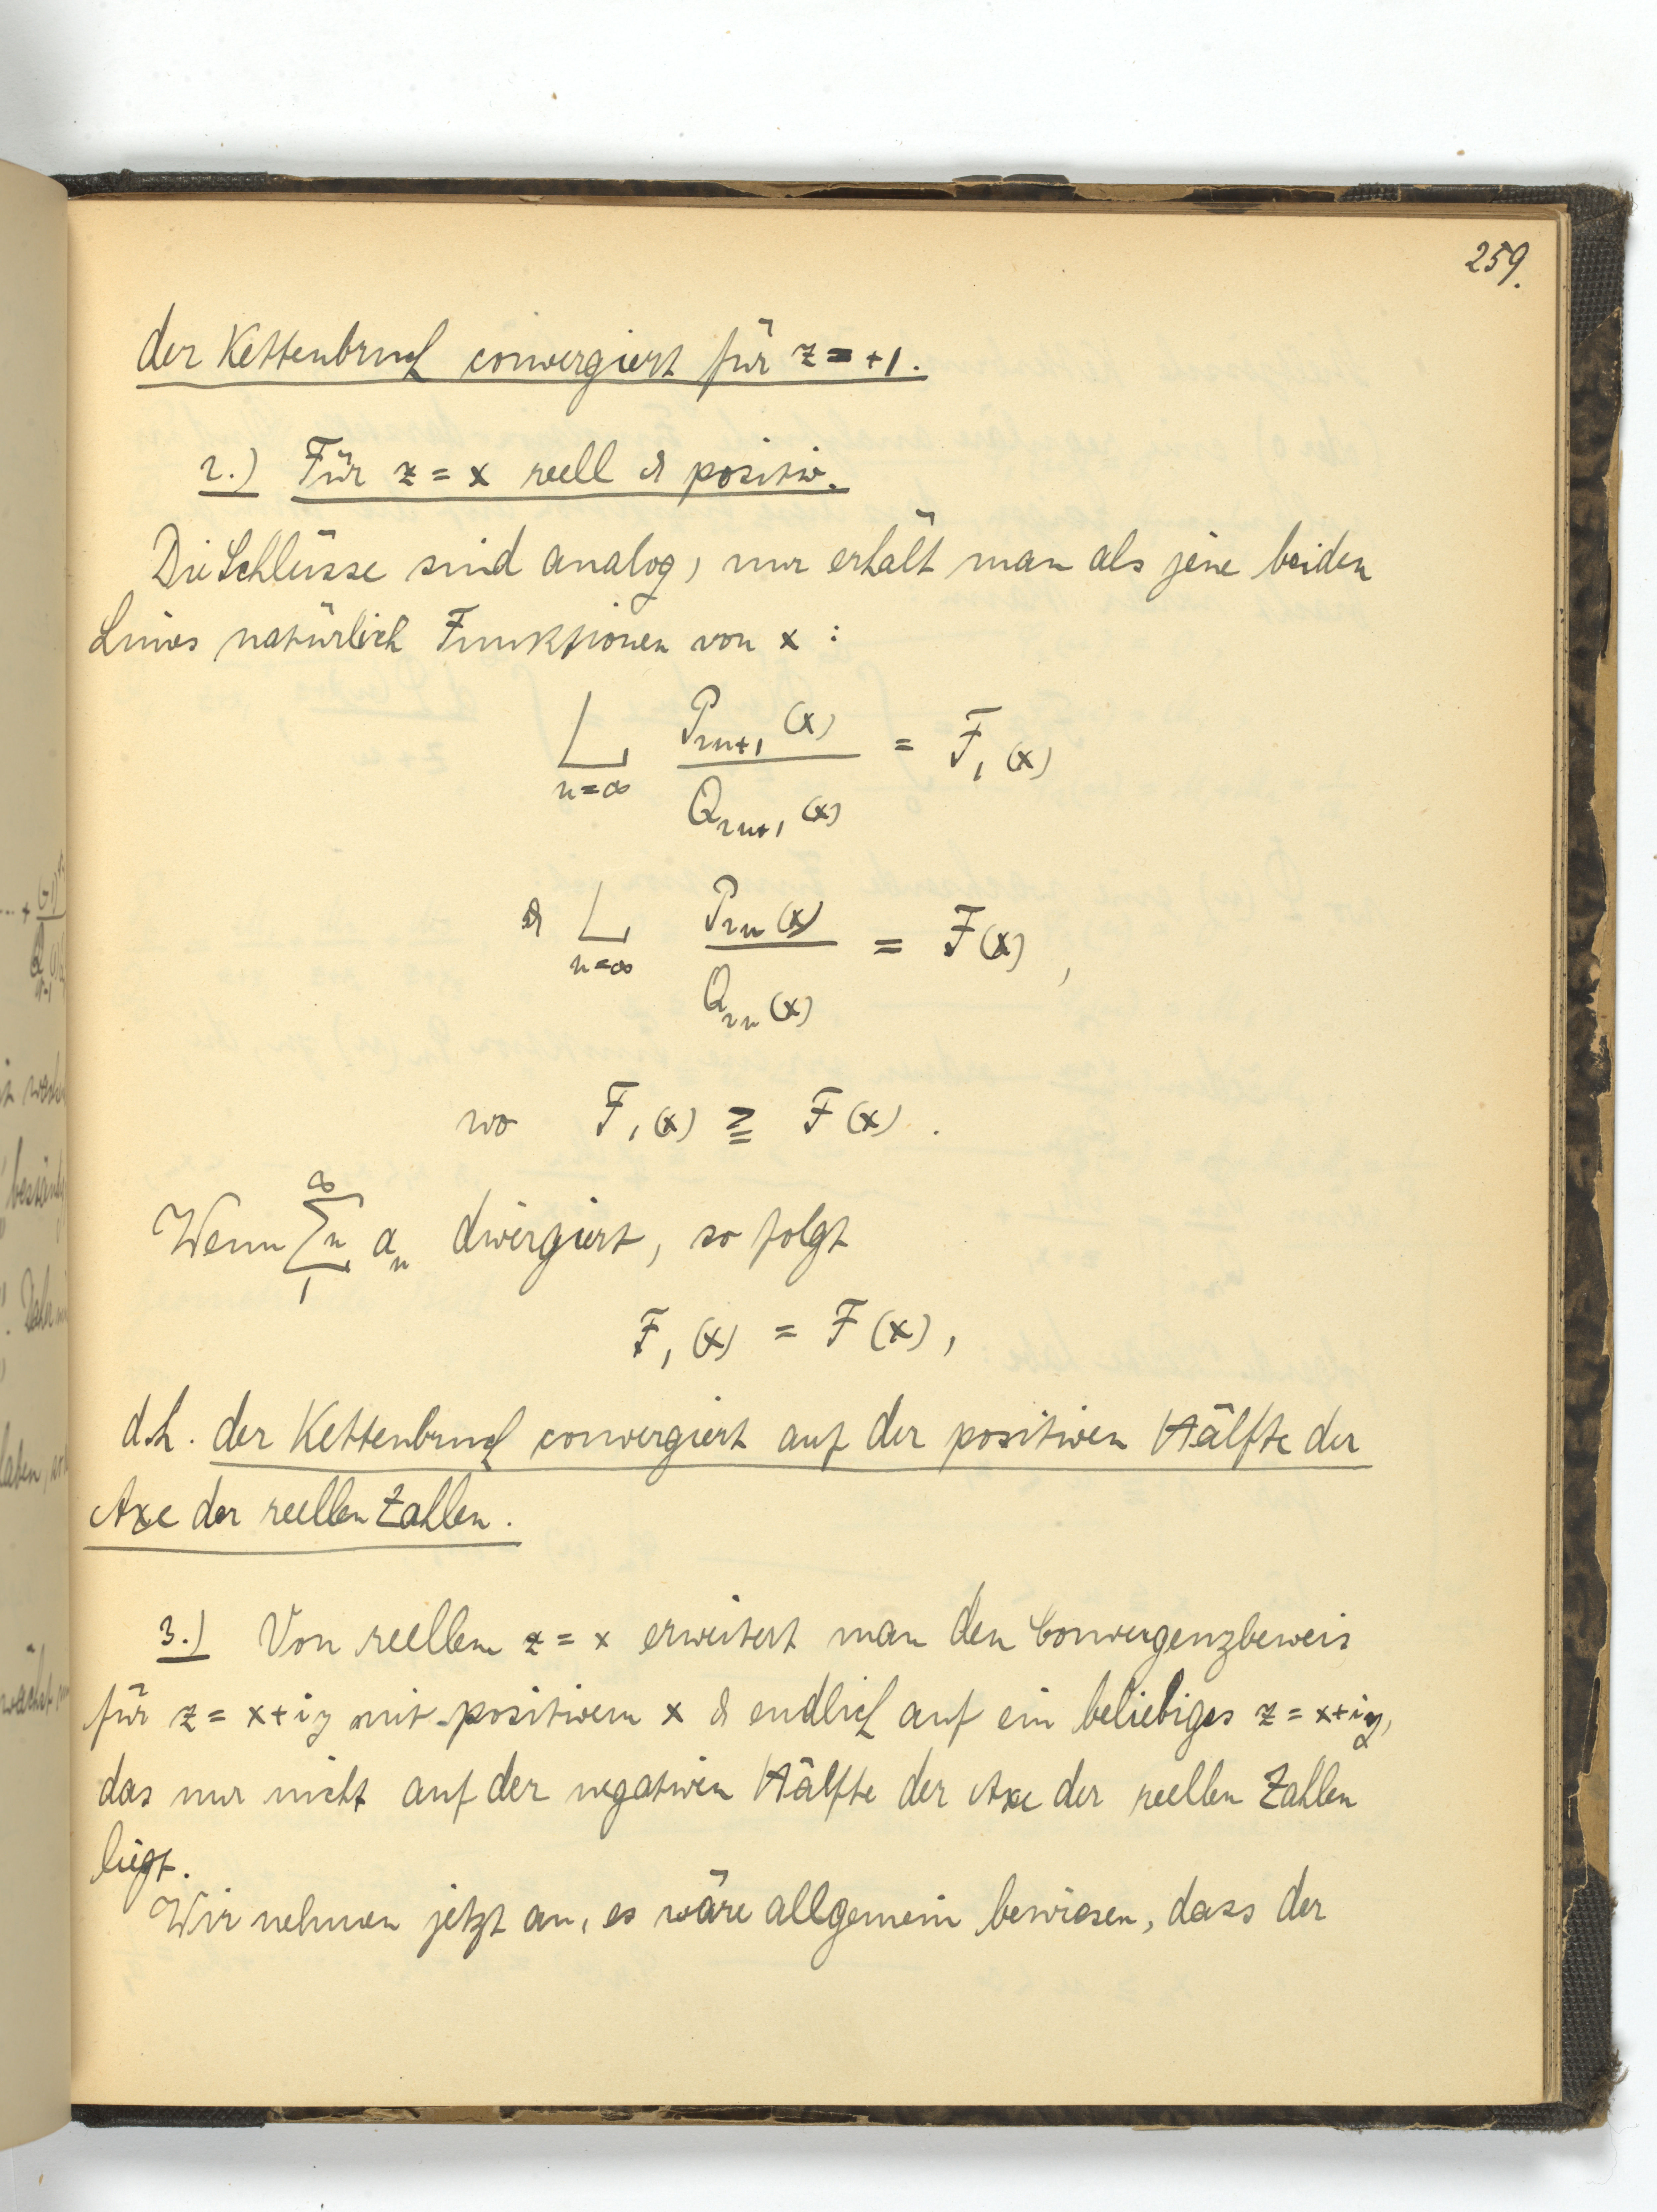 259.
der Kettenbruch convergiert für z = +1.
2.) Für z = x reell & positiv.
Die Schlüsse sind analog, nur erhält man als jene beiden
Limes natürlich Funktionen von x :
L P₂ₙ₊₁ (x) = F₁ (x)
n=∞ Q₂ₙ₊₁ (x)
& L P₂ₙ (x) = F(x) ,
n=∞ Q₂ₙ (x)
wo F₁(x) ≧ F(x) .
Wenn ∞ ∑ₙ 1 aₙ divergiert, so folgt
F₁ (x) = F (x) ,
d.h. der Kettenbruch convergiert auf der positiven Hälfte der
Axe der reellen Zahlen.
3.) Von reellem z = x erweitert man den Convergenzbeweis
für z = x+iy mit positivem x & endlich auf ein beliebiges z = x+iy,
das nur nicht auf der negativen Hälfte der Axe der reellen Zahlen
liegt.
Wir nehmen jetzt an, es wäre allgemein bewiesen, dass der